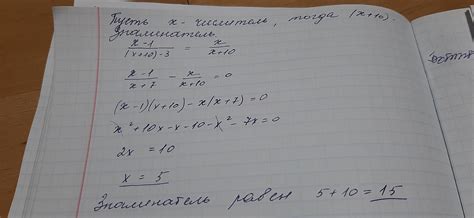 Пусть x - числитель, тогда (x+10) -
знаменатель
(x-1)/((x+10)-3) = x/(x+10)
(x-1)/(x+7) - x/(x+10) = 0
(x-1)(x+10) - x(x+7) = 0
x² + 10x - x - 10 - x² - 7x = 0
2x = 10
x = 5
Знаменатель равен 5+10 = 15